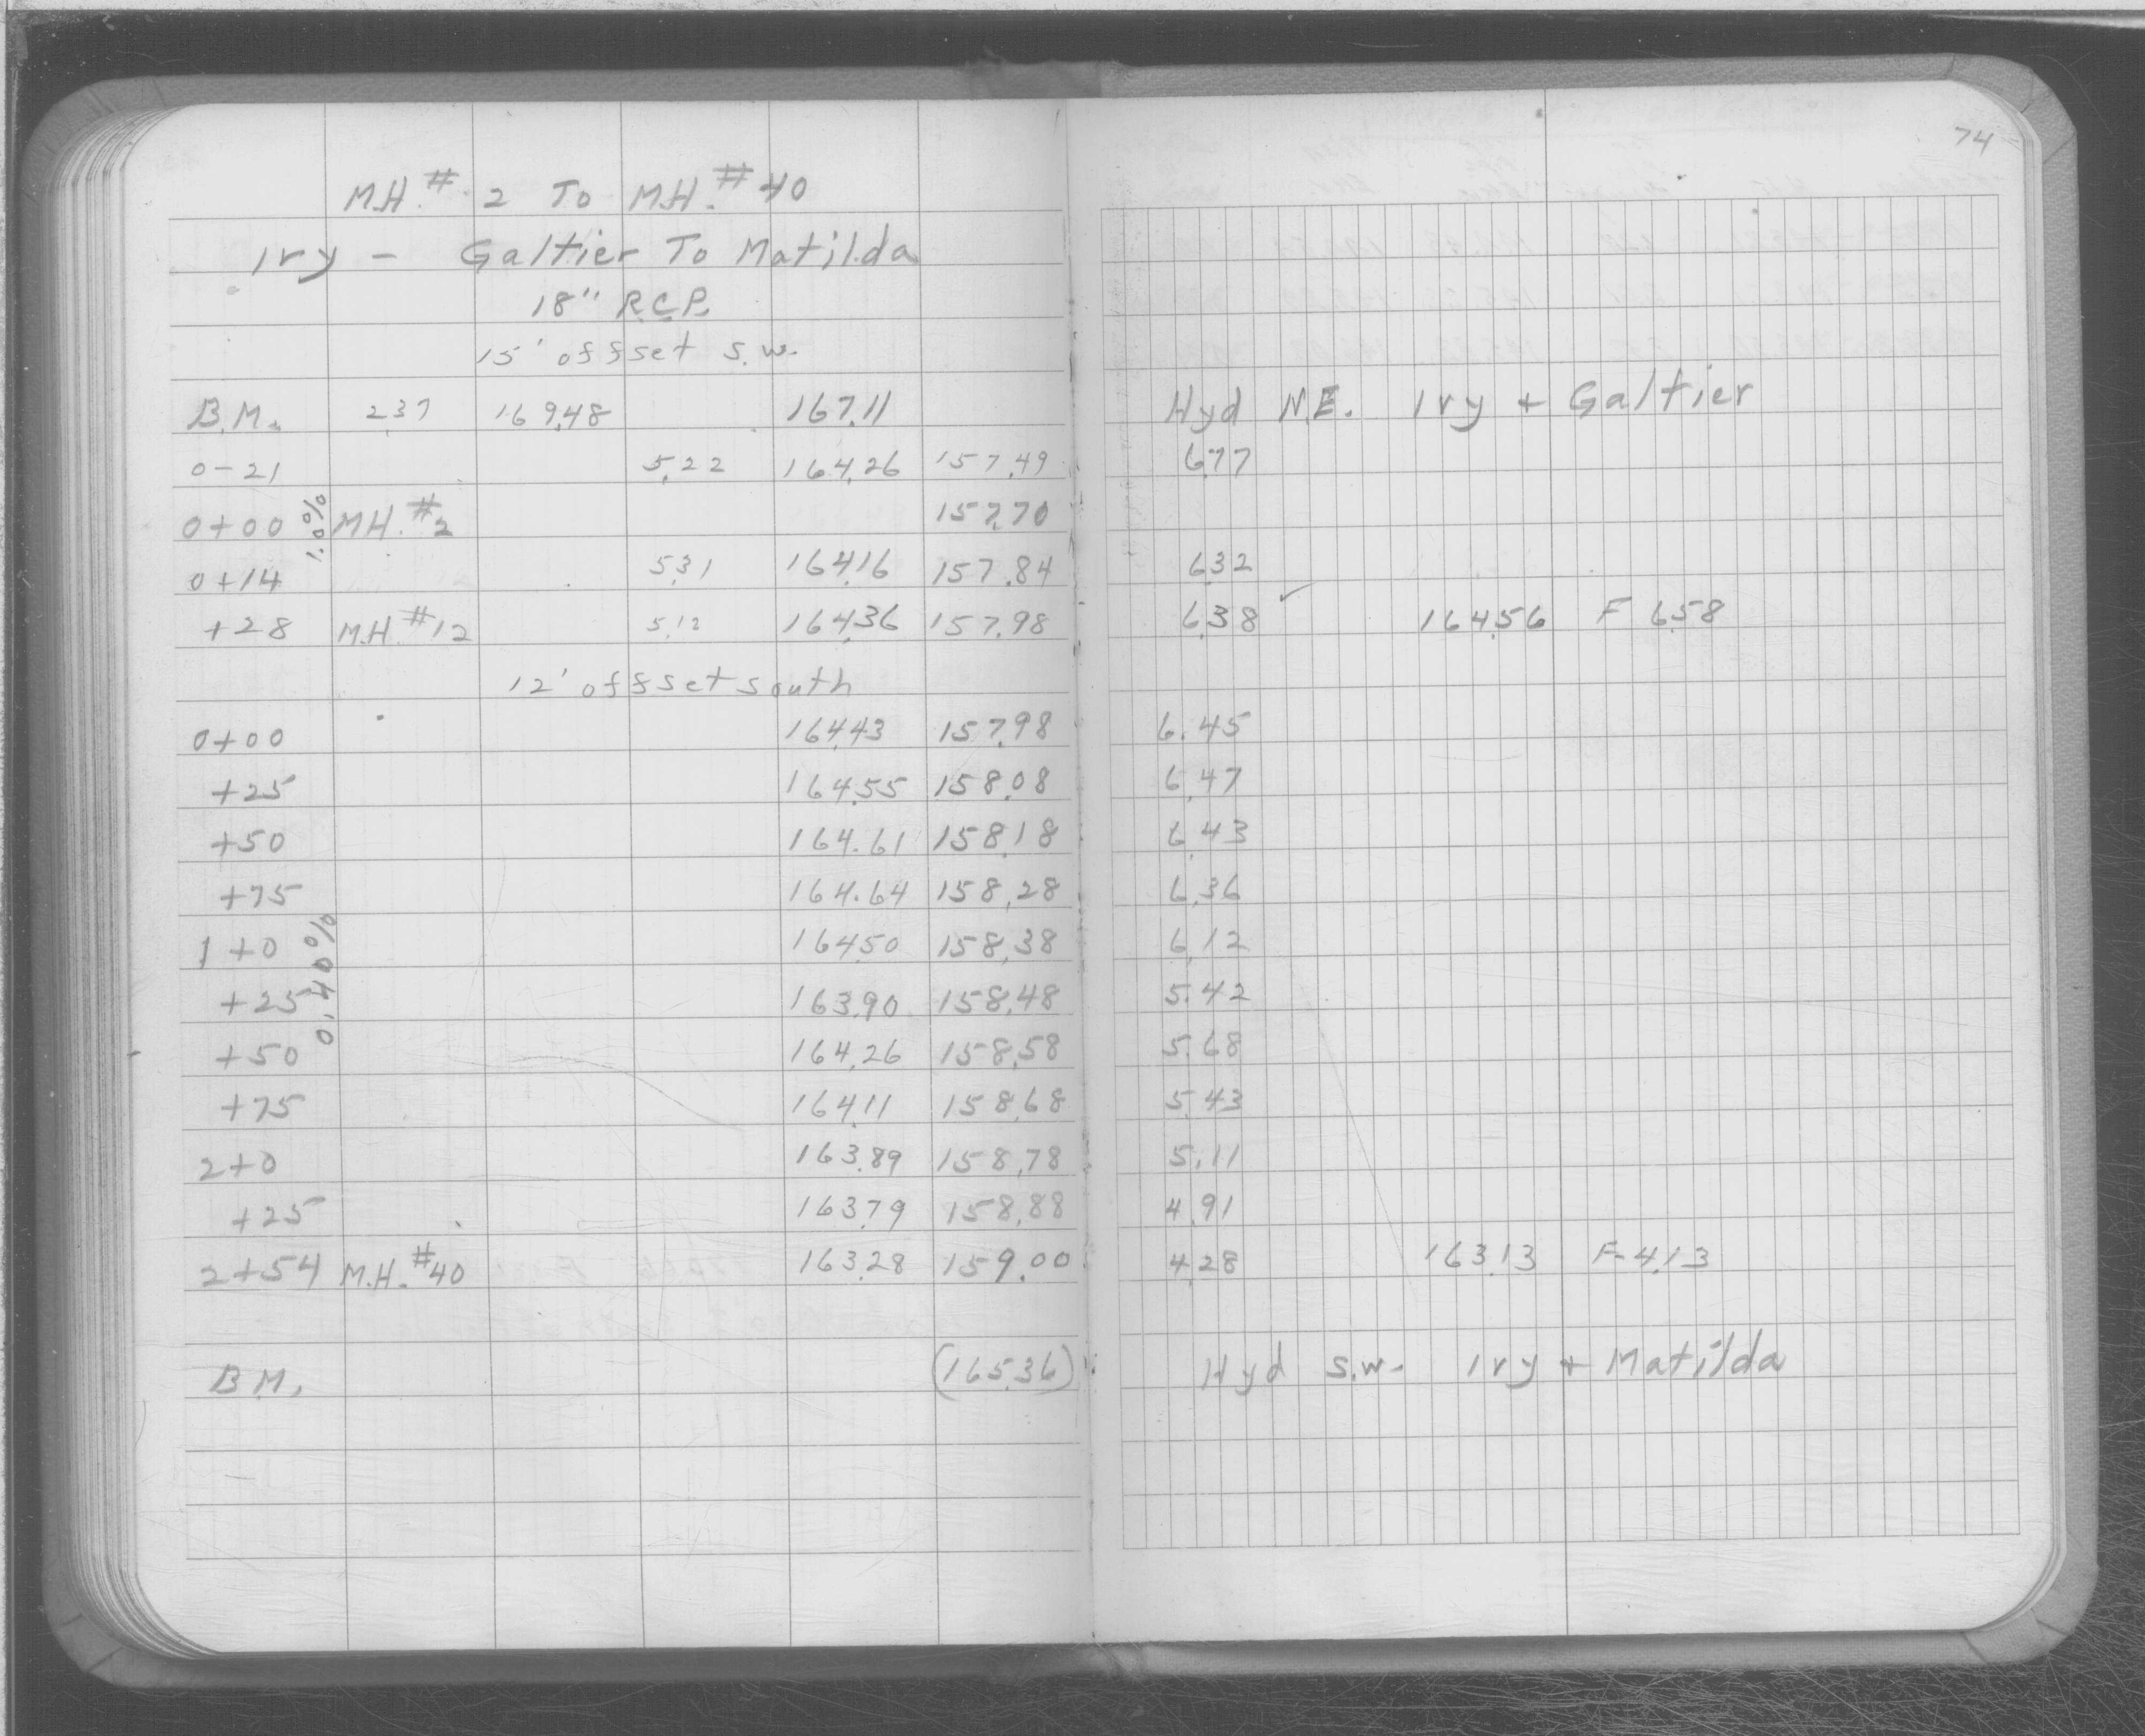 74
MH. # 2 To MH. # 40
Ivy - Galtier To Matilda
18" R.C.P.
15' offset s.w.
B.M. 2.37 169.48 167.11 Hyd N.E. Ivy + Galtier
0-21 5.22 164.26 157.49 6.77
0+00 MH. #2 157.70
1.00%
0+14 5.31 164.16 157.84 6.32
+28 M.H. #12 5.12 164.36 157.98 6.38 ✓ 164.56 F 6.58
12' offset south
0+00 164.43 157.98 6.45
+25 164.55 158.08 6.47
+50 164.61 158.18 6.43
+75 164.64 158.28 6.36
1+0 164.50 158.38 6.12
0.40%
+25 163.90 158.48 5.42
+50 164.26 158.58 5.68
+75 164.11 158.68 5.43
2+0 163.89 158.78 5.11
+25 163.79 158.88 4.91
2+54 M.H. #40 163.28 159.00 4.28 163.13 F-4.13
B.M. (165.36) Hyd s.w. Ivy + Matilda